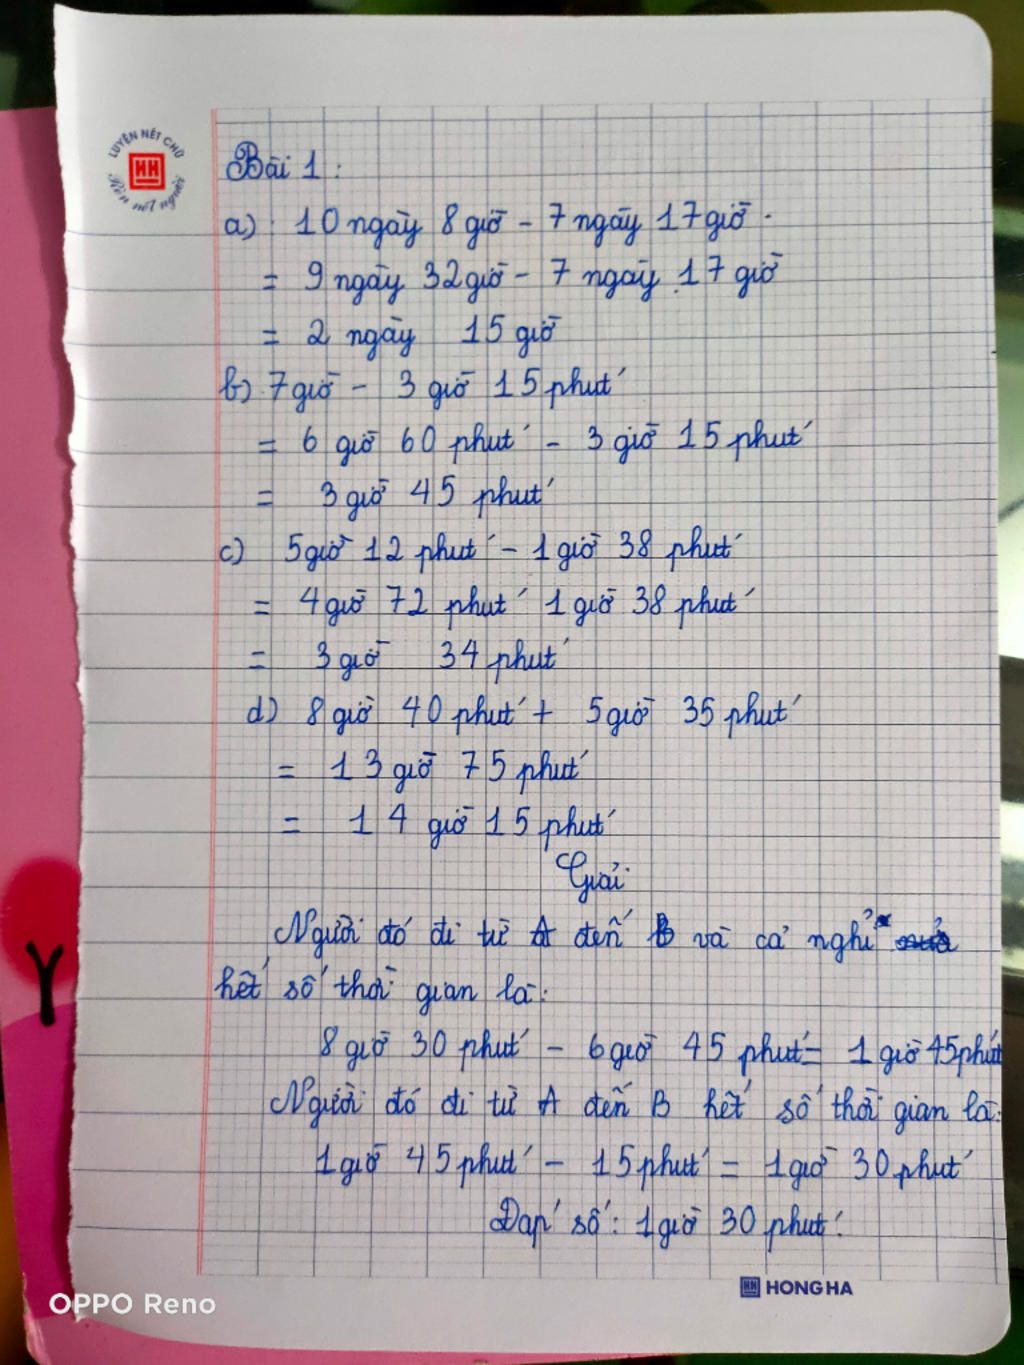 LUYỆN NÉT CHỮ
Rèn nết người
Bài 1:
a) 10 ngày 8 giờ - 7 ngày 17 giờ.
= 9 ngày 32 giờ - 7 ngày 17 giờ
= 2 ngày 15 giờ
b) 7 giờ - 3 giờ 15 phút
= 6 giờ 60 phút - 3 giờ 15 phút
= 3 giờ 45 phút
c) 5 giờ 12 phút - 1 giờ 38 phút
= 4 giờ 72 phút 1 giờ 38 phút
= 3 giờ 34 phút
d) 8 giờ 40 phút + 5 giờ 35 phút
= 13 giờ 75 phút
= 14 giờ 15 phút
Giải
Người đó đi từ A đến B và cả nghỉ
hết số thời gian là:
8 giờ 30 phút - 6 giờ 45 phút = 1 giờ 45 phút
Người đó đi từ A đến B hết số thời gian là:
1 giờ 45 phút - 15 phút = 1 giờ 30 phút
Đáp số: 1 giờ 30 phút.
HH HONG HA
OPPO Reno